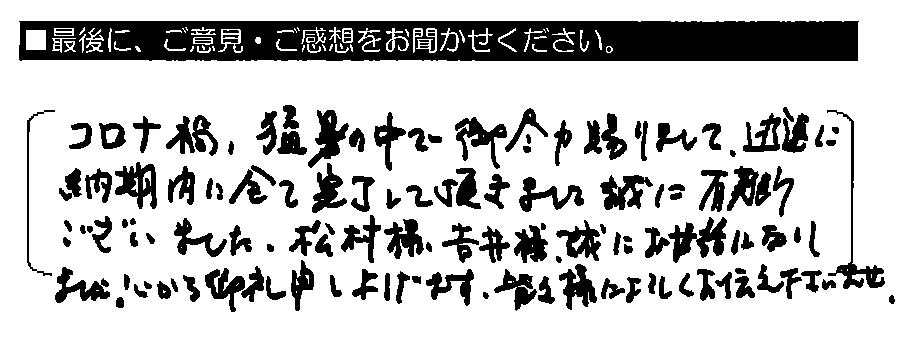 ■最後に、ご意見・ご感想をお聞かせください。
コロナ禍、猛暑の中で御尽力賜りまして、迅速に
納期内に全て完了して頂きまして誠に有難う
ございました。松村様、吉井様、誠にお世話になり
ました。心から御礼申し上げます。皆々様によろしくお伝え下さいませ。